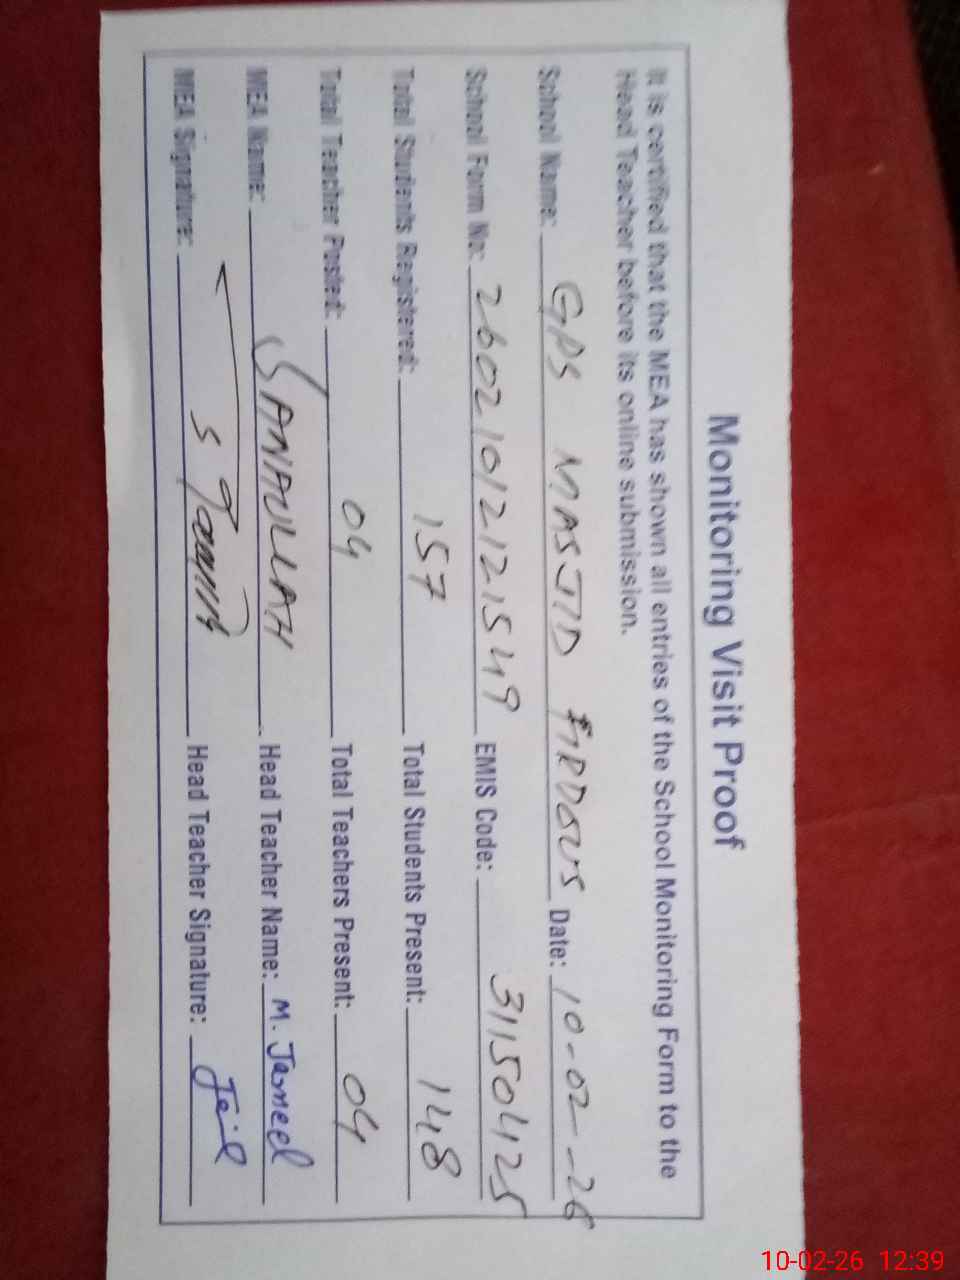 Monitoring Visit Proof
It is certified that the MEA has shown all entries of the School Monitoring Form to the
Head Teacher before its online submission.
School Name: GPS MASJID FIRDOUS Date: 10-02-26
School Form No: 26021012121549 EMIS Code: 31150425
Total Students Registered: 157 Total Students Present: 148
Total Teacher Posted: 04 Total Teachers Present: 04
MEA Name: SANAULLAH Head Teacher Name: M. Jameel
MEA Signature: Head Teacher Signature:
10-02-26 12:39